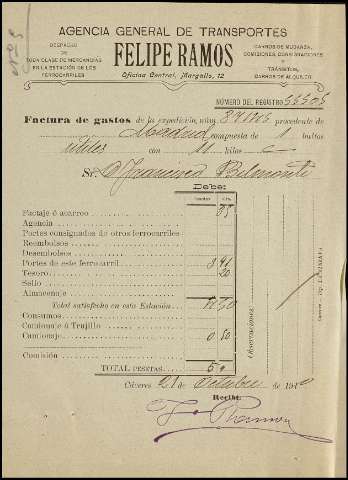 AGENCIA GENERAL DE TRANSPORTES
DESPACHO
DE
TODA CLASE DE MERCANCIAS
EN LA ESTACIÓN DE LOS
FERROCARRILES
FELIPE RAMOS
Oficina Central, Margallo, 12
CARROS DE MUDANZA,
COMISIONES, CONSIGNACIONES
Y
TRÁNSITOS,
CARROS DE ALQUILER
NÚMERO DEL REGISTRO 55505
Factura de gastos de la expedición núm. procedente de
Madrid compuesta de 1 bultos
útiles con 11 kilos
Sr. D. Francisco Belmonte
Debe:
Pesetas Cts.
Factaje ó acarreo 85
Agencia
Portes consignados de otros ferrocarriles
Reembolsos
Desembolsos
Portes de este ferrocarril 3 41
Tesoro 20
Sello
Almacenaje
Total satisfecho en esta Estación 50
Consumos
Camionaje á Trujillo
Camionaje 0 50
Comisión
TOTAL PESETAS 5
Observaciones:
Cáceres 21 de Octubre de 191
Recibí:
F Ramos